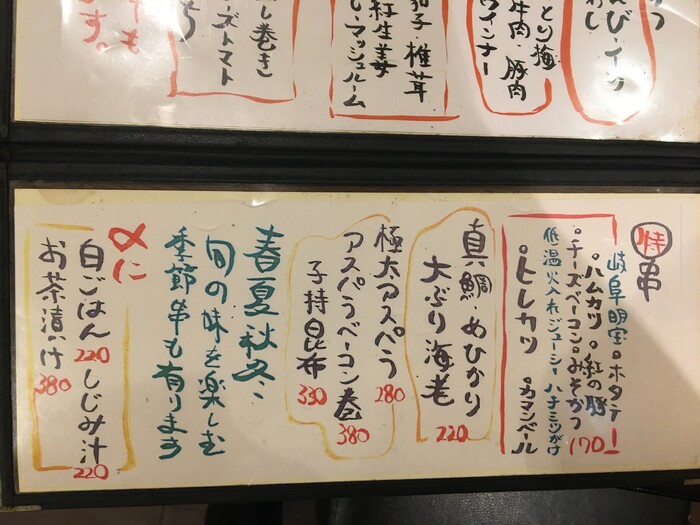 かつ
えび・イカ
いわし
とり梅
牛肉・豚肉
ウインナー
茄子 椎茸
紅生姜
し・マッシュルーム
し巻き
ーズトマト
でも
す。
特串
岐阜明宝 ・ホタテ
・ハムカツ ・紅の豚
・チーズベーコン ・みそかつ 170
低温火入れジューシー ハチミツがけ
・ヒレカツ ・カマンベール
真鯛・めひかり
大ぶり海老 220
極太アスパラ 280
アスパラベーコン巻 380
子持昆布 330
春夏秋冬、
旬の味を楽しむ
季節串も有ります
〆に
白ごはん 220 しじみ汁 220
お茶漬け 380